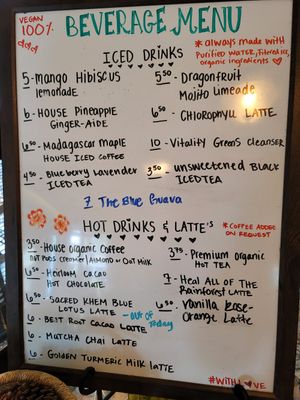 VEGAN
100%
BEVERAGE MENU
ICED DRINKS
* always made with
Purified water, Filtered ice,
organic ingredients
5 - Mango Hibiscus
Lemonade
5.50 - Dragonfruit
Mojito Limeade
6 - House Pineapple
Ginger-Aide
6.50 - Chlorophyll Latte
6.50 - Madagascar Maple
House Iced Coffee
10 - Vitality Greens Cleanser
4.50 - Blueberry Lavender
Iced Tea
3.50 - Unsweetened Black
Iced Tea
7 The Blue Guava
HOT DRINKS & LATTE'S
* Coffee added
on request
3.50 - House Organic Coffee
Nut Pods Creamer / Almond or Oat Milk
3.75 - Premium Organic
Hot Tea
6.50 - Heirloom Cacao
Hot Chocolate
7 - Heal All of the
Rainforest Latte
6.50 - Sacred Khem Blue
Lotus Latte
6.50 - Vanilla Rose-
Orange Latte
6 - Beet Root Cacao Latte - out of
Today
6 - Matcha Chai Latte
6 - Golden Turmeric Milk Latte
#WITH LOVE